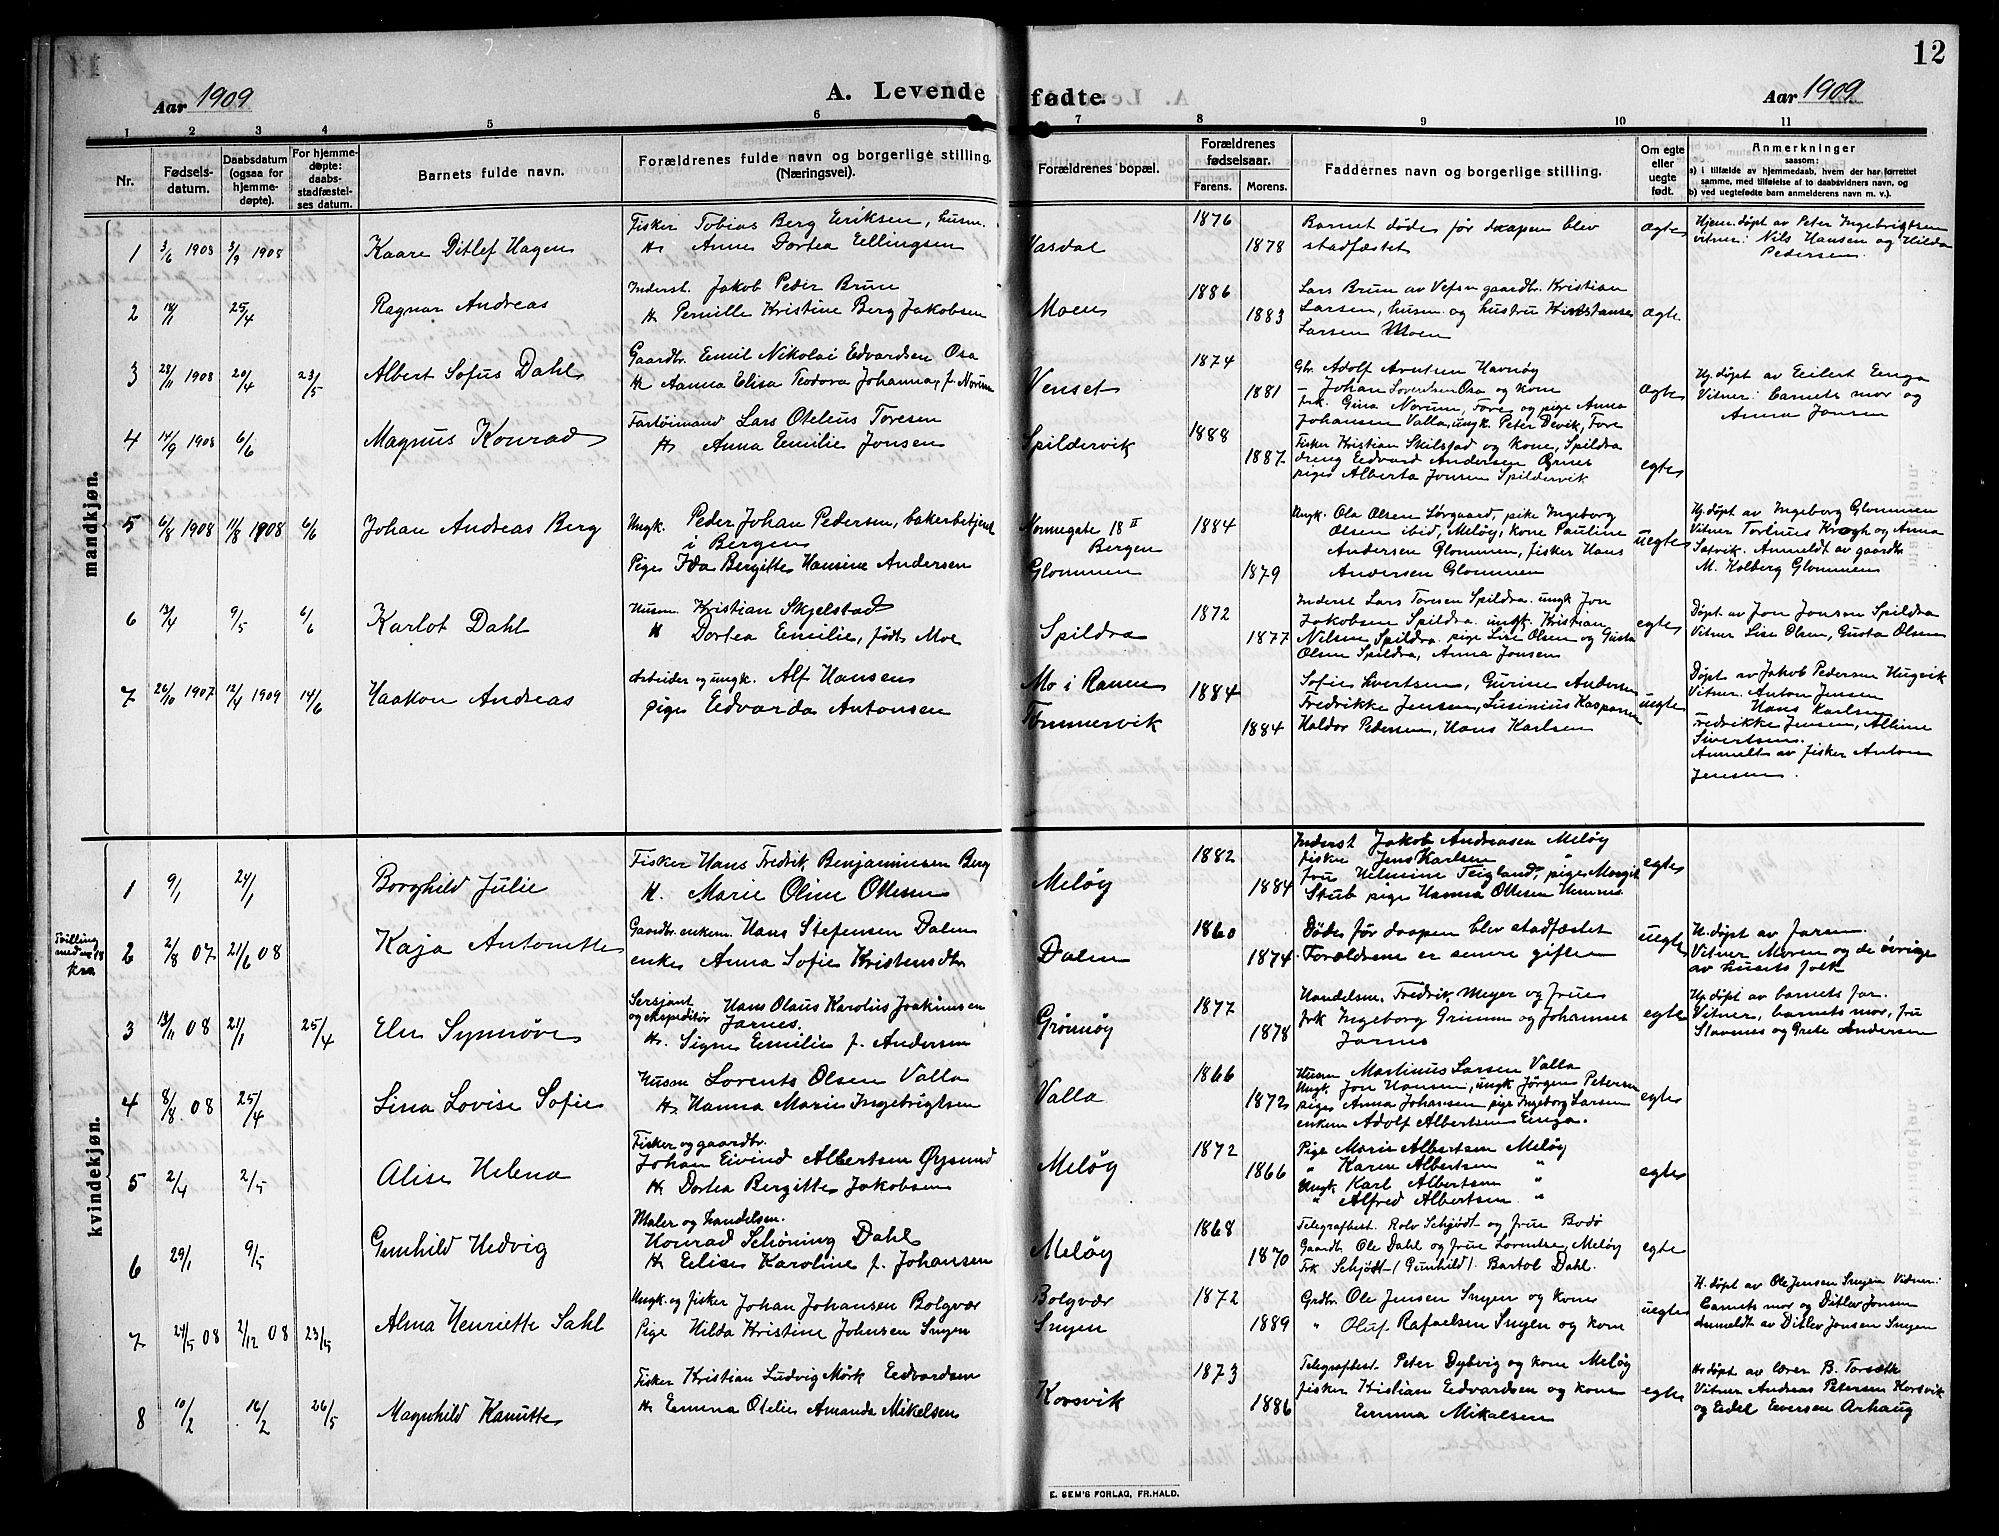 12
Aar 1909
A. Levende fødte.
Aar 1909
1 2 3 4 5 6 7 8 9 10 11
Nr.
Fødsels-
datum.
Daabsdatum
(ogsaa for
hjemme-
døpte).
For hjemme-
døpte:
daabs-
stadfæstel-
ses datum.
Barnets fulde navn.
Forældrenes fulde navn og borgerlige stilling.
(Næringsvei).
Forældrenes bopæl.
Forældrenes
fødselsaar.
Farens. Morens.
Faddernes navn og borgerlige stilling.
Om egte
eller
uegte
født.
Anmerkninger
saasom:
a) i tilfælde av hjemmedaab, hvem der har forrettet
samme, med tilføielse af to daabsvidners navn, og
b) ved uegtefødte barn anmelderens navn m. v.).
mandkjøn.
1 3/6 1908 3/9 1908 Kaare Ditlef Hagen
Fisker Tobias Berg Eriksen, husm.
H. Anne Dortea Ellingsen
Vasdal
1876
1878
Barnet døde før daapen blev
stadfæstet
ægte
Hjem. døpt av Peter Ingebrigtsen
vitner: Nils Hansen og Hilda
Pedersen.
2 14/1 25/4 Ragnar Andreas
Inderst. Jakob Peder Brun
H. Pernille Kristine Berg Jakobsen
Moen
1886
1883
Lars Brun av Vefsn gaardbr. Kristian
Larsen, husm. og hustru Kirstanse
Larsen Moen
ægte
3 28/11 1908 20/4 23/5 Albert Sofus Dahl
Gaardbr. Emil Nikolai Edvardsen Osa
H. Aanna Elisa Teodora Johanna, f. Norum
Venset
1874
1881
Gbr. Adolf Arntsen Havnøy
– Johan Lorentsen Osa og kone
frk. Gina Norum, Fore og pige Anna
Johansen Valla, ungk. Peter Devik, Fore
ægte
Hj. døpt av Eilert Enga
Vitner: barnets mor og
Anna Jonsen
4 14/9 1908 6/6 Magnus Konrad
Fartøimand Lars Oteleus Toresen
H. Anna Emilie Jonsen
Spildervik
1888
1887
Fisker Kristian Skilstad og kone, Spildra
dreng Edvard Andersen Ørnes
pige Alberta Jonsen Spildervik
egte
5 6/8 1908 11/8 1908 6/6 Johan Andreas Berg
Ungk. Peder Johan Pedersen, bakerbetjent
i Bergen
Pige Ida Bergitte Hansine Andersen
Nonnegate 18 II
Bergen
Glommen
1884
1879
Ungk. Ola Olsen Sørgaard, pike Ingeborg
Olsen ibid, Meløy, kone Pauline
Andersen Glommen, fisker Hans
Andersen Glommen
uegte
Hj. døpt av Ingeborg Glommen
Vitner Torlius Krogh og Anna
Sætvik. Anmeldt av gaardbr.
M. Kolberg Glommen
6 13/4 9/5 6/6 Karlot Dahl
Husm. Kristian Skjelstad
H. Dortea Emilie, født Moe
Spildra
1872
1877
Inderst Lars Toresen Spildra. ungk Jon
Jakobsen Spildra. ungk. Kristian
Nilsen Spildra. pige Lise Olsen og Gusta
Olsen Spildra, Anna Jonsen
egte
Døpt av Jon Jonsen Spildra
Vitner Lise Olsen, Gusta Olsen
7 26/10 1907 12/4 1909 14/6 Haakon Andreas
Arbeider og ungk. Alf Hansen
pige Edvarda Antonsen
Mo i Ranen
Tømmersvik
1884
1884
Sofie Evertsen, Gurine Andersen
Fredrikke Jensen, Lusinius Kaspersen
Haldor Pedersen, Hans Karlsen
uegte
Døpt av Jakob Pedersen Hugvik
Vitner. Anton Jensen
Hans Karlsen
Fredrikke Jensen, Albine
Sivertsen.
Anmeldt av fisker Anton
Jensen.
kvindekjøn.
1 9/1 24/1 Borghild Julie
Fisker Hans Fredrik Benjaminsen Berg
H. Marie Oline Ottesen
Meløy
1882
1884
Inderst Jakob Andreasen Meløy
fisker Jens Karlsen "
fru Vilmine Teigland, pige Margit
Stub pige Hanna Ottesen Hemnes
egte
Tvilling
med nr 18
fra
2 2/8 07 21/6 08 Kaja Antonette
Gaardbr. enkem. Hans Stefensen Dalen
enke Anna Sofie Kristensdtr
Dalen
1860
1874
Døde før daapen blev stadfæstet
Forældrene er senere gifte
uegte
H. døpt av faren.
Vitner Moren og de øvrige
av husets folk
3 13/11 08 21/1 25/4 Else Synnøve
Sersjant Hans Olaus Karolus Joakimsen
og ekspeditør Jarnes.
H. Signe Emilie f. Andersen
Grønnøy
1877
1878
Handelsm. Fredrik Meyer og frue
frk Ingeborg Grimm og Johannes
Jarnes
egte
Hj. døpt av barnets far.
Vitner, barnets mor, fru
Slavenus og Grete Andersen
4 8/8. 08 25/4 Lina Lovise Sofie
Husm Lorents Olsen Valla
H. Hanna Marie Ingebrigtsen
Valla
1866
1872
Husm Martinus Larsen Valla
Ungk. Jon Hansen, ungk Jørgen Petersen
pige Anna Johansen pige Ingeborg Larsen
enkem Adolf Albertsen Enga.
egte
5 2/4 2/5 Alise Helena
Fisker og gaardbr.
Johan Eivind Albertsen Øysund
H. Dortea Bergitte Jakobsen
Meløy
1872
1866
Pige Marie Albertsen Meløy
" Karen Albertsen "
Ungk Karl Albertsen "
" Alfred Albertsen "
egte
6 29/1 9/5 Gunhild Hedvig
Maler og handelsm.
Konrad Schøning Dahl
H. Elise Karoline f. Johansen
Meløy
1868
1870
Telegrafbest. Rolv Schjødt og frue Bodø
Gaardbr Ole Dahl og frue Lorentse, Meløy
Frk Schjødt (Gunhild) Bartol Dahl.
egte
7 24/5 08 2/12 08 23/5 Alma Henriette Sahl
Ungk. og fisker Johan Johansen Bolgvær
Pige Hilda Kristine Johnsen Svyen
Bolgvær
1872
1889
Grdbr. Ole Jensen og kone
" Oluf Rafaelsen og kone
uegte
H. døpt av Ole Jensen Vidner:
barnets mor og Ditlev Jonsen
Anmeldt av Ditlev Jonsen
8 10/2 16/2 26/5 Magnhild Kanutte
Fisker Kristian Ludvig Mörk Edvardsen
H. Emma Otelie Amanda Mikelsen
Korsvik
1873
1886
Telegrafbest. Peter Dybvig og kone Meløy
fisker Kristian Edvardsen og kone
Emma Mikalsen
egte
H. døpt av lærer B. Torsæth
Vitner Andreas Petersen Korsvik
og Edel Eversen Arhaug
E. SEM'S FORLAG, FR.HALD.